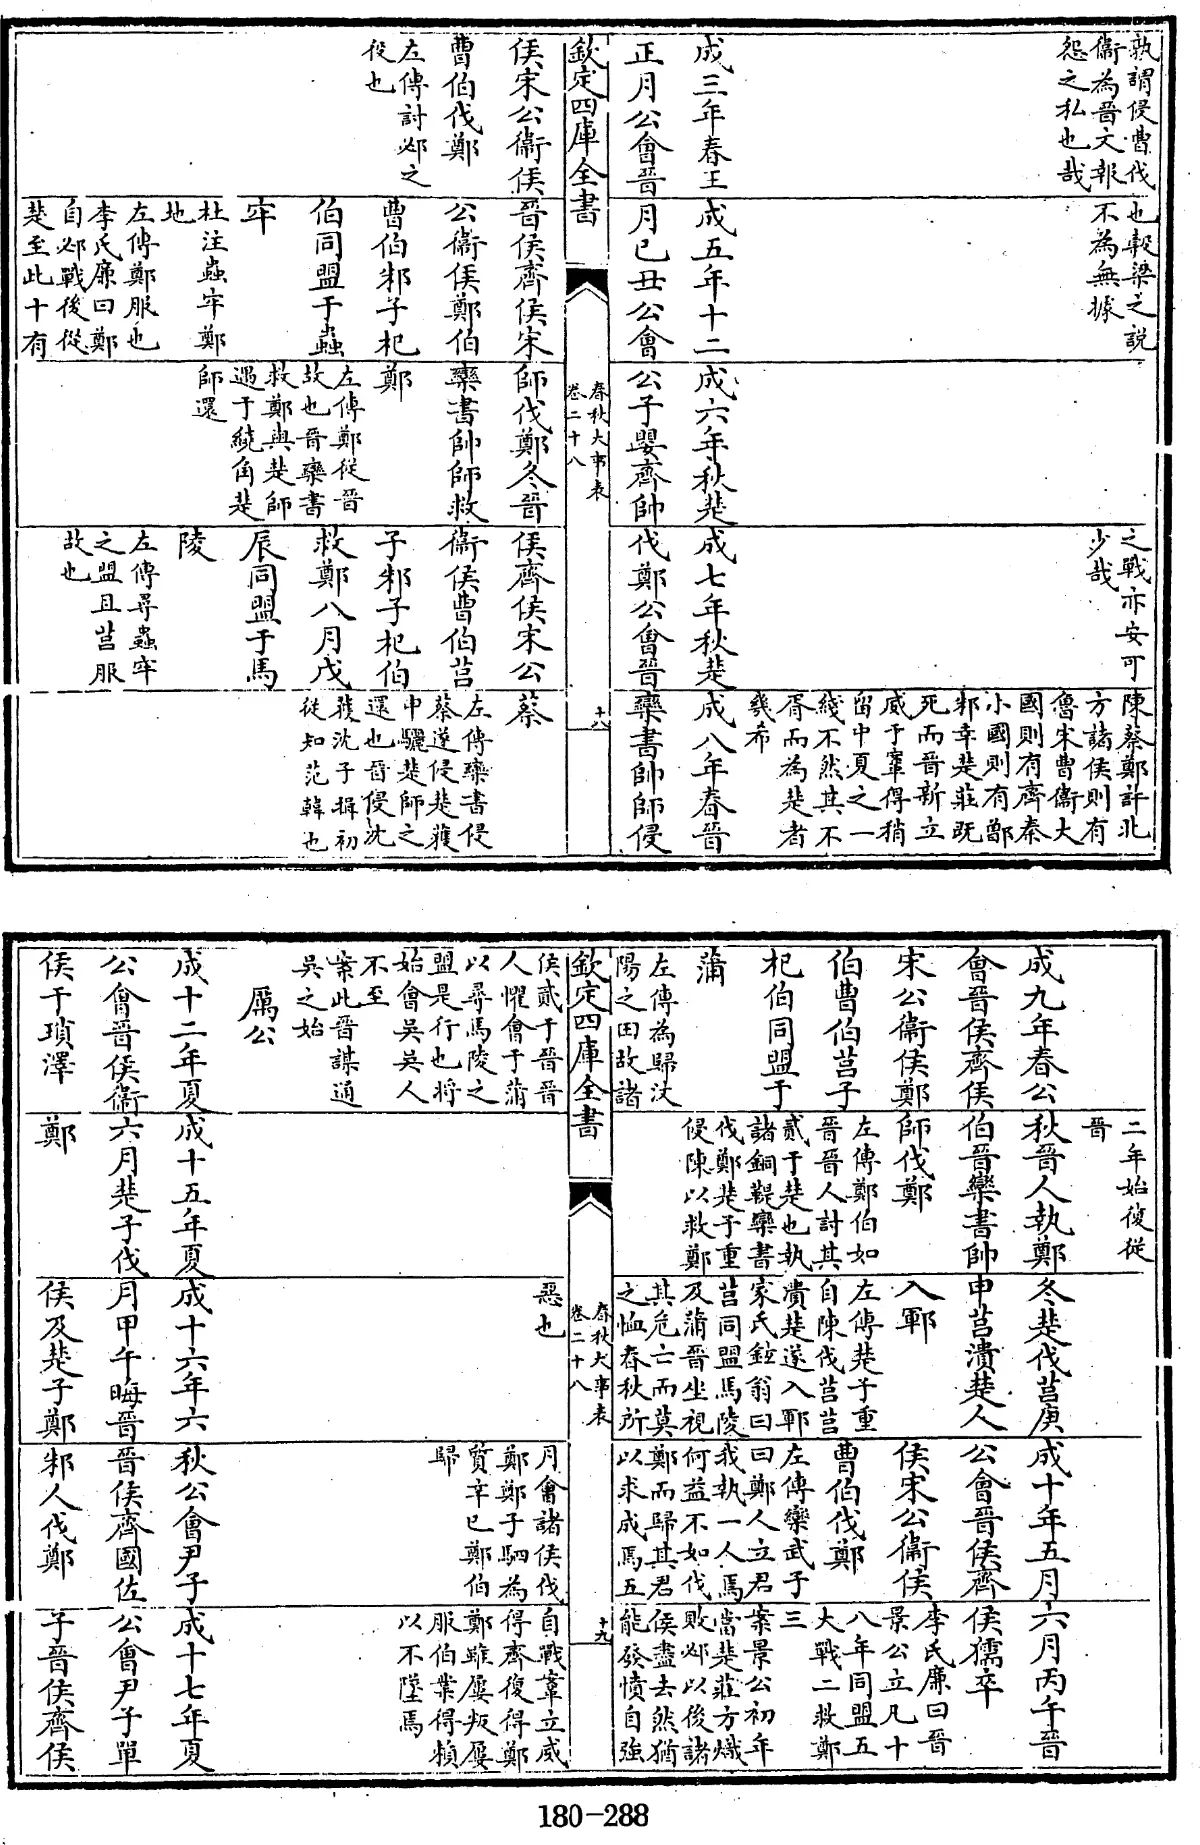 孰謂侵曹伐
衞為晉文報
怨之私也哉
成三年春王
正月公會晉
也穀梁之説
不為無據
成五年十二
月己丑公會
成六年秋楚
公子嬰齊帥
之戰亦安可
少哉
成七年秋楚
伐鄭公會晉
陳蔡鄭許北
方諸侯則有
魯宋曹衞大
國則有齊秦
小國則有鄫
邾幸楚莊既
死而晉新立
威于鞌得稍
留中夏之一
綫不然其不
胥而為楚者
幾希
成八年春晉
欒書帥師侵
欽定四庫全書
春秋大事表
卷二十八
十八
侯宋公衞侯
曹伯伐鄭
左傳討邲之
役也
晉侯齊侯宋
公衞侯鄭伯
曹伯邾子杞
伯同盟于蟲
牢
杜注蟲牢鄭
地
左傳鄭服也
李氏廉曰鄭
自邲戰後從
楚至此十有
師伐鄭冬晉
欒書帥師救
鄭
左傳鄭從晉
故也晉欒書
救鄭與楚師
遇于繞角楚
師還
侯齊侯宋公
衞侯曹伯莒
子邾子杞伯
救鄭八月戊
辰同盟于馬
陵
左傳尋蟲牢
之盟且莒服
故也
蔡
左傳欒書侵
蔡遂侵楚獲
申驪楚師之
還也晉侵沈
獲沈子揖初
從知范韓也
成九年春公
會晉侯齊侯
宋公衞侯鄭
伯曹伯莒子
杞伯同盟于
蒲
左傳為歸汶
陽之田故諸
二年始復從
晉
秋晉人執鄭
伯晉欒書帥
師伐鄭
左傳鄭伯如
晉晉人討其
貳于楚也執
諸銅鞮欒書
伐鄭楚子重
侵陳以救鄭
冬楚伐莒庚
申莒潰楚人
入鄆
左傳楚子重
自陳伐莒莒
潰楚遂入鄆
家氏鉉翁曰
莒同盟馬陵
及蒲晉坐視
其危亡而莫
之恤春秋所
成十年五月
公會晉侯齊
侯宋公衞侯
曹伯伐鄭
左傳欒武子
曰鄭人立君
我執一人焉
何益不如伐
鄭而歸其君
以求成焉五
六月丙午晉
侯獳卒
李氏廉曰晉
景公立凡十
八年同盟五
大戰二救鄭
三
案景公初年
當楚莊方熾
敗邲以後諸
侯盡去然猶
能發憤自強
欽定四庫全書
春秋大事表
卷二十八
十九
侯貳于晉晉
人懼會于蒲
以尋馬陵之
盟是行也將
始會吳吳人
不至
案此晉謀通
吳之始
厲公
成十二年夏
公會晉侯衞
侯于瑣澤
成十五年夏
六月楚子伐
鄭
惡也
成十六年六
月甲午晦晉
侯及楚子鄭
月會諸侯伐
鄭鄭子駟為
質辛巳鄭伯
歸
秋公會尹子
晉侯齊國佐
邾人伐鄭
自戰鞌立威
得齊復得鄭
鄭雖屢叛屢
服伯業得賴
以不墜焉
成十七年夏
公會尹子單
子晉侯齊侯
180-288